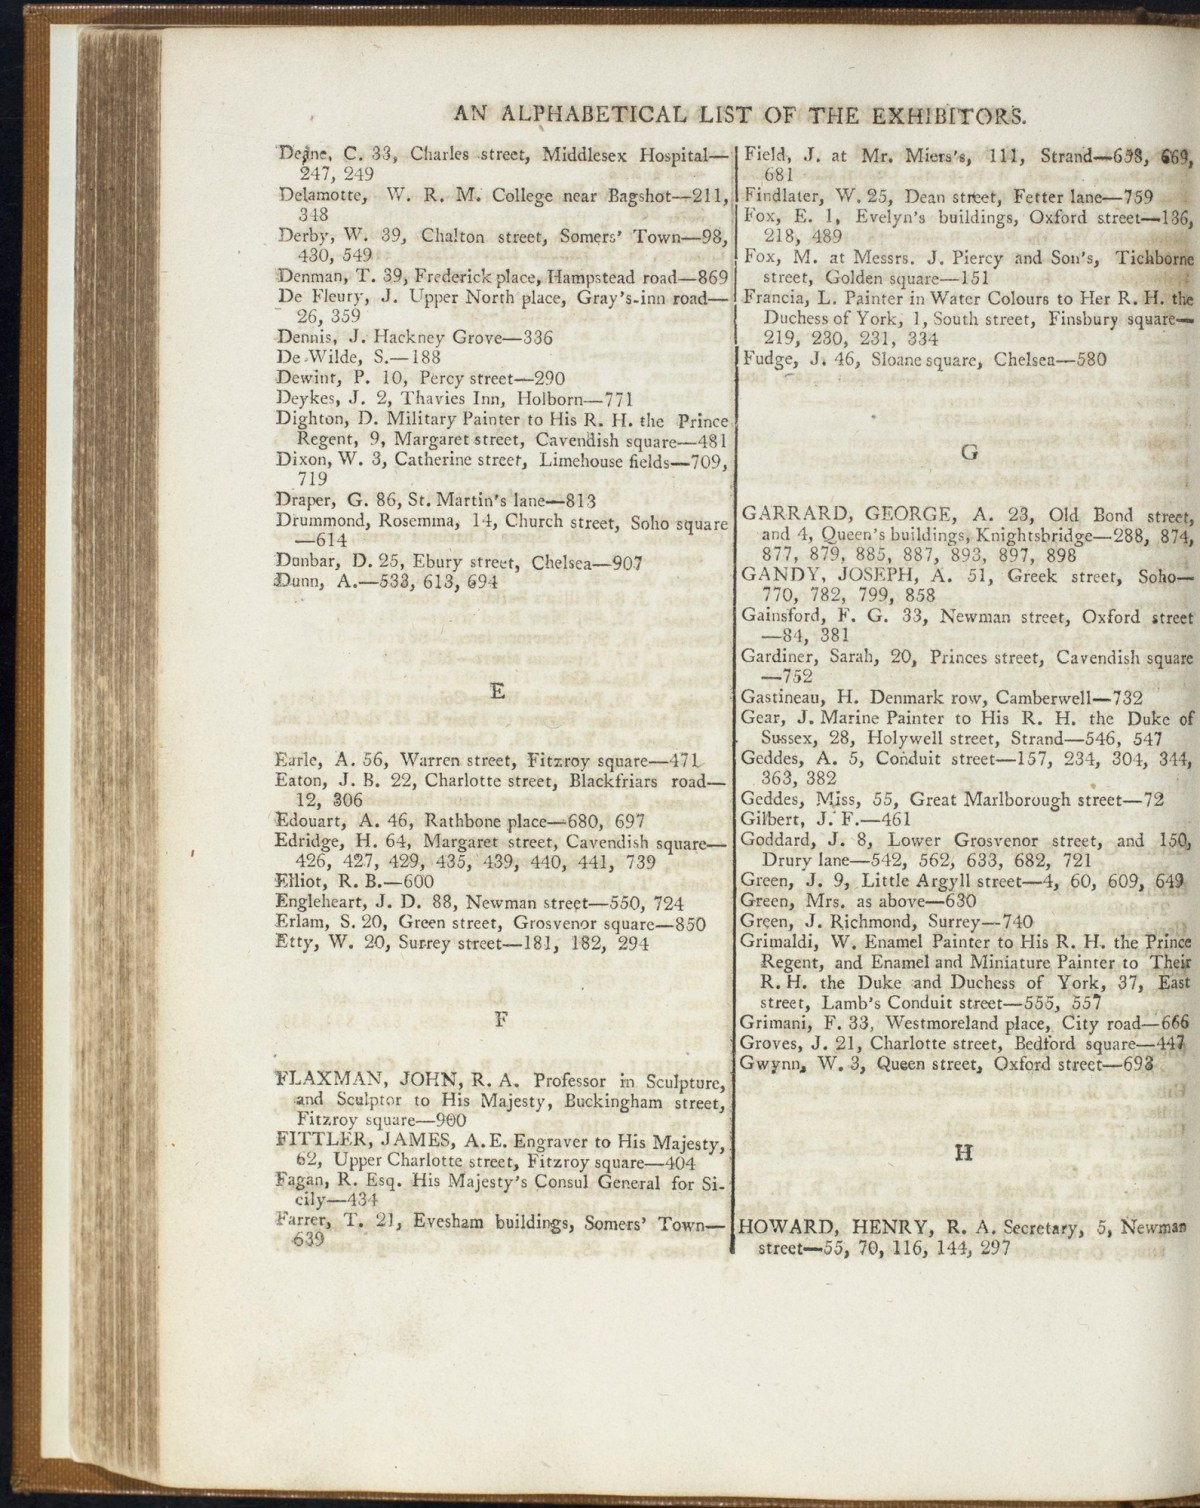 AN ALPHABETICAL LIST OF THE EXHIBITORS.
Deane, C. 33, Charles street, Middlesex Hospital—
247, 249
Delamotte, W. R. M. College near Bagshot—211,
348
Derby, W. 39, Chalton street, Somers' Town—98,
430, 549
Denman, T. 39, Frederick place, Hampstead road—869
De Fleury, J. Upper North place, Gray's-inn road—
26, 359
Dennis, J. Hackney Grove—336
De Wilde, S.—188
Dewint, P. 10, Percy street—290
Deykes, J. 2, Thavies Inn, Holborn—771
Dighton, D. Military Painter to His R. H. the Prince
Regent, 9, Margaret street, Cavendish square—481
Dixon, W. 3, Catherine street, Limehouse fields—709,
719
Draper, G. 86, St. Martin's lane—813
Drummond, Rosemma, 14, Church street, Soho square
—614
Dunbar, D. 25, Ebury street, Chelsea—907
Dunn, A.—533, 613, 694
E
Earle, A. 56, Warren street, Fitzroy square—471
Eaton, J. B. 22, Charlotte street, Blackfriars road—
12, 306
Edouart, A. 46, Rathbone place—680, 697
Edridge, H. 64, Margaret street, Cavendish square—
426, 427, 429, 435, 439, 440, 441, 739
Elliot, R. B.—600
Engleheart, J. D. 88, Newman street—550, 724
Erlam, S. 20, Green street, Grosvenor square—850
Etty, W. 20, Surrey street—181, 182, 294
F
FLAXMAN, JOHN, R. A. Professor in Sculpture,
and Sculptor to His Majesty, Buckingham street,
Fitzroy square—900
FITTLER, JAMES, A. E. Engraver to His Majesty,
62, Upper Charlotte street, Fitzroy square—404
Fagan, R. Esq. His Majesty's Consul General for Si-
cily—434
Farrer, T. 21, Evesham buildings, Somers' Town—
639
Field, J. at Mr. Miers's, 111, Strand—638, 669,
681
Findlater, W. 25, Dean street, Fetter lane—759
Fox, E. 1, Evelyn's buildings, Oxford street—136,
218, 489
Fox, M. at Messrs. J. Piercy and Son's, Tichborne
street, Golden square—151
Francia, L. Painter in Water Colours to Her R. H. the
Duchess of York, 1, South street, Finsbury square—
219, 230, 231, 334
Fudge, J. 46, Sloane square, Chelsea—580
G
GARRARD, GEORGE, A. 23, Old Bond street,
and 4, Queen's buildings, Knightsbridge—288, 874,
877, 879, 885, 887, 893, 897, 898
GANDY, JOSEPH, A. 51, Greek street, Soho—
770, 782, 799, 858
Gainsford, F. G. 33, Newman street, Oxford street
—84, 381
Gardiner, Sarah, 20, Princes street, Cavendish square
—752
Gastineau, H. Denmark row, Camberwell—732
Gear, J. Marine Painter to His R. H. the Duke of
Sussex, 28, Holywell street, Strand—546, 547
Geddes, A. 5, Conduit street—157, 234, 304, 344,
363, 382
Geddes, Miss, 55, Great Marlborough street—72
Gilbert, J. F.—461
Goddard, J. 8, Lower Grosvenor street, and 150,
Drury lane—542, 562, 633, 682, 721
Green, J. 9, Little Argyll street—4, 60, 609, 649
Green, Mrs. as above—630
Green, J. Richmond, Surrey—740
Grimaldi, W. Enamel Painter to His R. H. the Prince
Regent, and Enamel and Miniature Painter to Their
R. H. the Duke and Duchess of York, 37, East
street, Lamb's Conduit street—555, 557
Grimani, F. 33, Westmoreland place, City road—666
Groves, J. 21, Charlotte street, Bedford square—447
Gwynn, W. 3, Queen street, Oxford street—693
H
HOWARD, HENRY, R. A. Secretary, 5, Newman
street—55, 70, 116, 144, 297